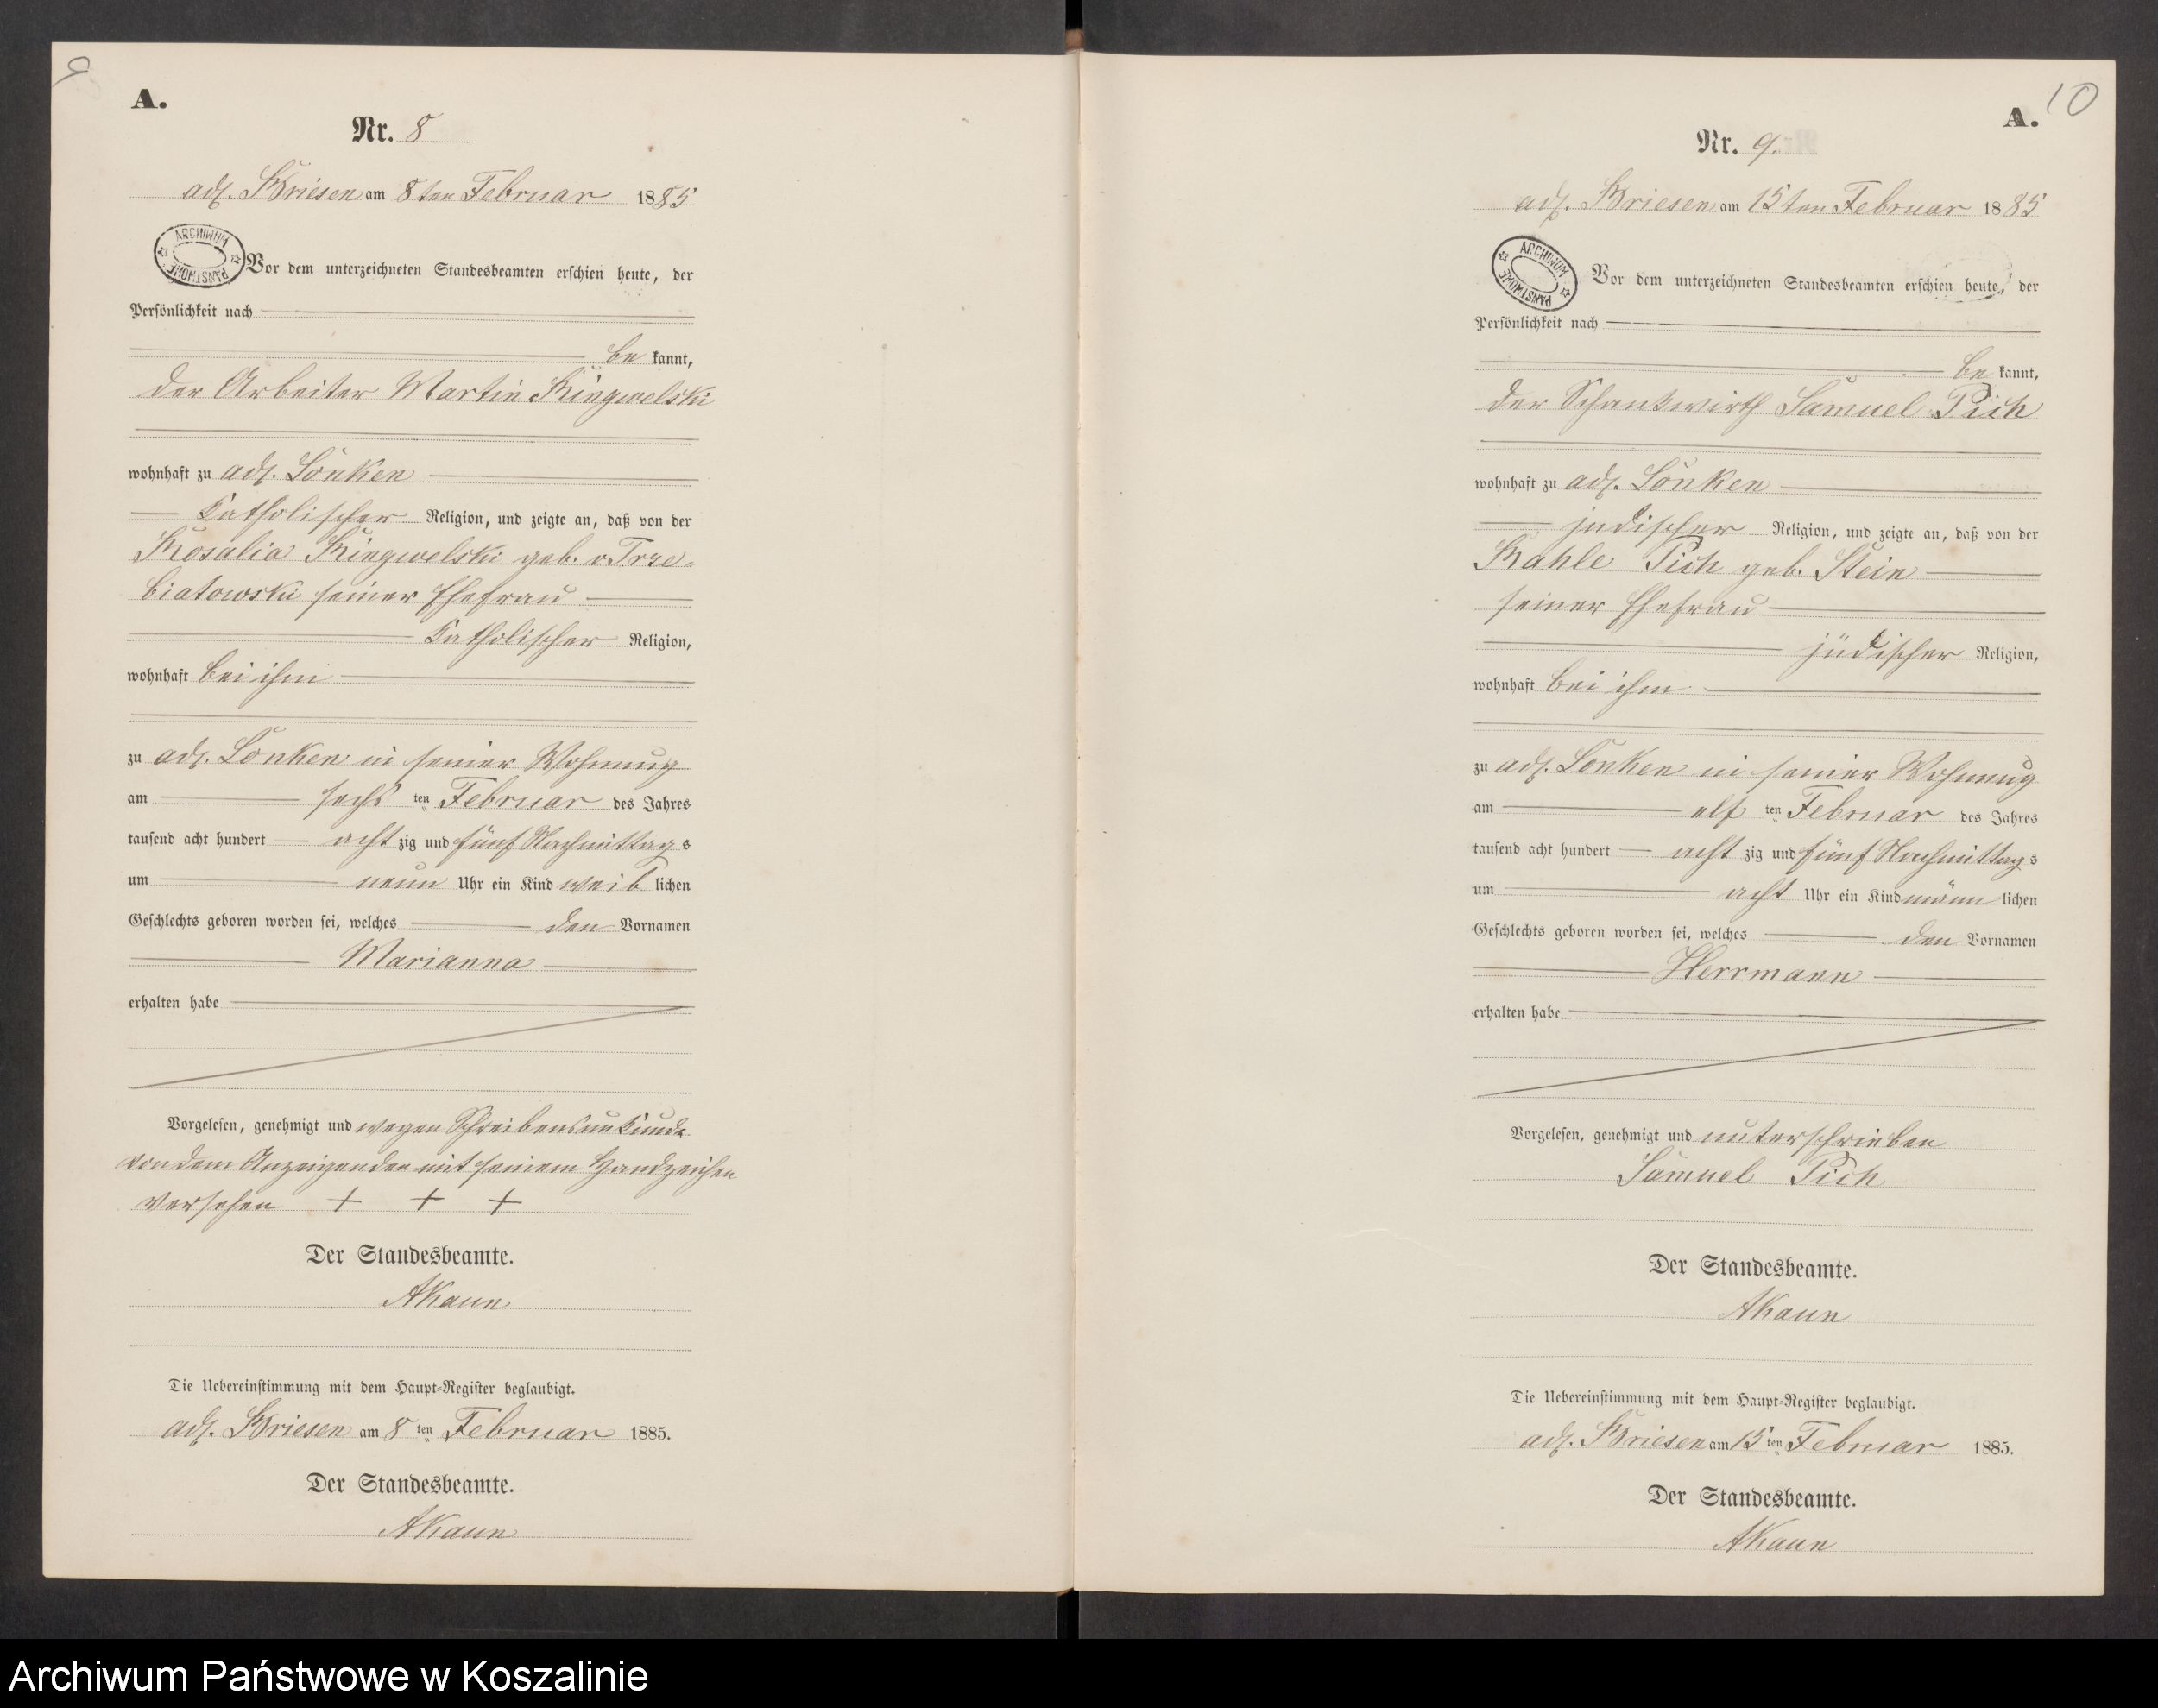 9
A.
Nr. 8
adl. Briesen am 8ten Februar 1885
ARCHIWUM PAŃSTWOWE
Vor dem unterzeichneten Standesbeamten erschien heute, der
Persönlichkeit nach
be kannt,
der Arbeiter Martin Ringwelski
wohnhaft zu adl. Lonken
katholischer Religion, und zeigte an, daß von der
Rosalia Ringwelski geb. v. Trze-
biatowski seiner Ehefrau
katholischer Religion,
wohnhaft bei ihm
zu adl. Lonken in seiner Wohnung
am sechs ten Februar des Jahres
tausend acht hundert acht zig und fünf Nachmittags
um neun Uhr ein Kind weib lichen
Geschlechts geboren worden sei, welches den Vornamen
Marianna
erhalten habe
Vorgelesen, genehmigt und wegen Schreibensunkunde
von dem Anzeigenden mit seinem Handzeichen
versehen + + +
Der Standesbeamte.
AKaun
Die Uebereinstimmung mit dem Haupt-Register beglaubigt.
adl. Briesen am 8 ten Februar 1885.
Der Standesbeamte.
AKaun
10
A.
Nr. 9.
adl. Briesen am 15ten Februar 1885
ARCHIWUM PAŃSTWOWE
Vor dem unterzeichneten Standesbeamten erschien heute, der
Persönlichkeit nach
be kannt,
der Schankwirth Samuel Pick
wohnhaft zu adl. Lonken
jüdischer Religion, und zeigte an, daß von der
Rahle Pick geb. Stein
seiner Ehefrau
jüdischer Religion,
wohnhaft bei ihm
zu adl. Lonken in seiner Wohnung
am elf ten Februar des Jahres
tausend acht hundert acht zig und fünf Nachmittags
um acht Uhr ein Kind männ lichen
Geschlechts geboren worden sei, welches den Vornamen
Herrmann
erhalten habe
Vorgelesen, genehmigt und unterschrieben
Samuel Pick
Der Standesbeamte.
AKaun
Die Uebereinstimmung mit dem Haupt-Register beglaubigt.
adl. Briesen am 15 ten Februar 1885.
Der Standesbeamte.
AKaun
Archiwum Państwowe w Koszalinie